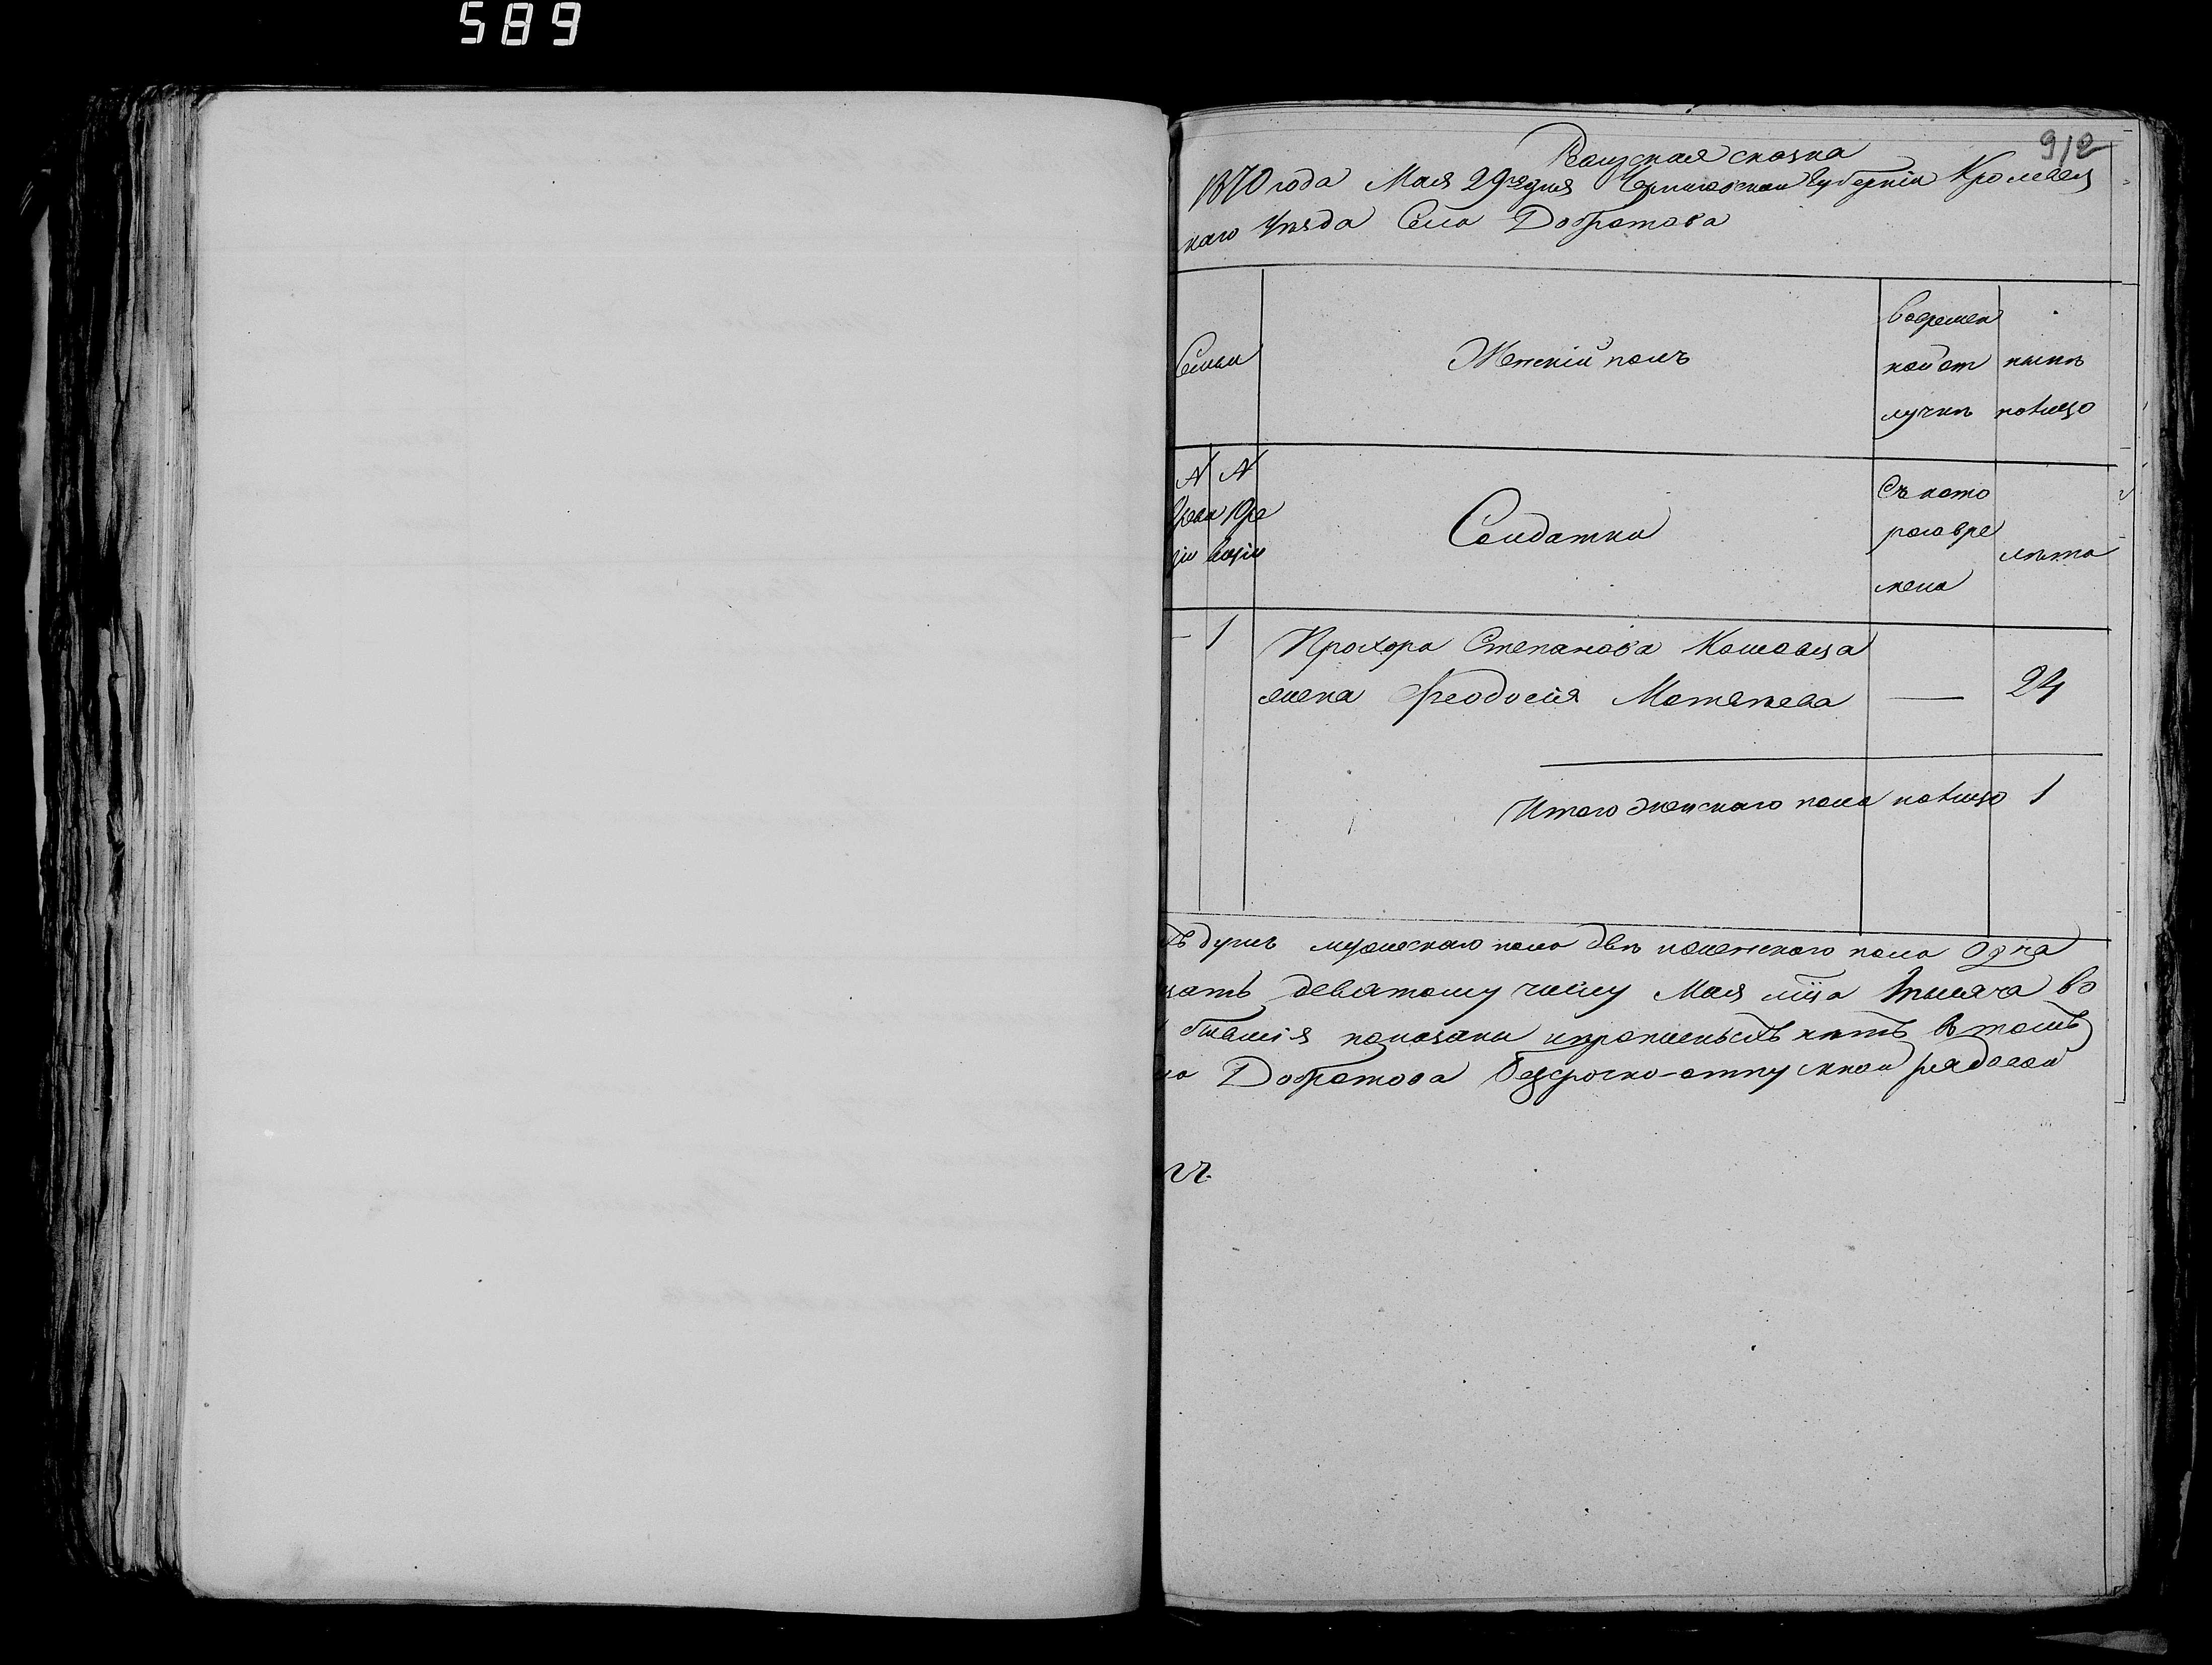 589
912
Ревизская сказка
1870 года Мая 29го дня Черниговской Губернии Кролевец
каго Уѣзда Село Добротова
Семьи
Женскій полъ
Во времен
ной от
лучкѣ
нынѣ
налицо
N N
реви
зіи
Ре
визіи
Солдатки
Съ кото
рого вре
мена
лѣта
- 1
Прохора Степанова Кошовца
жена Феодосія Матвѣева — 24
Итого женскаго пола налицо 1
хъ душъ мужескаго пола двѣ и женскаго пола одна
цать девятому числу Мая мца Тысяча во
бывшія показаны и прописныхъ нѣтъ в томъ
ло Добротова безсрочно-отпускной рядовой